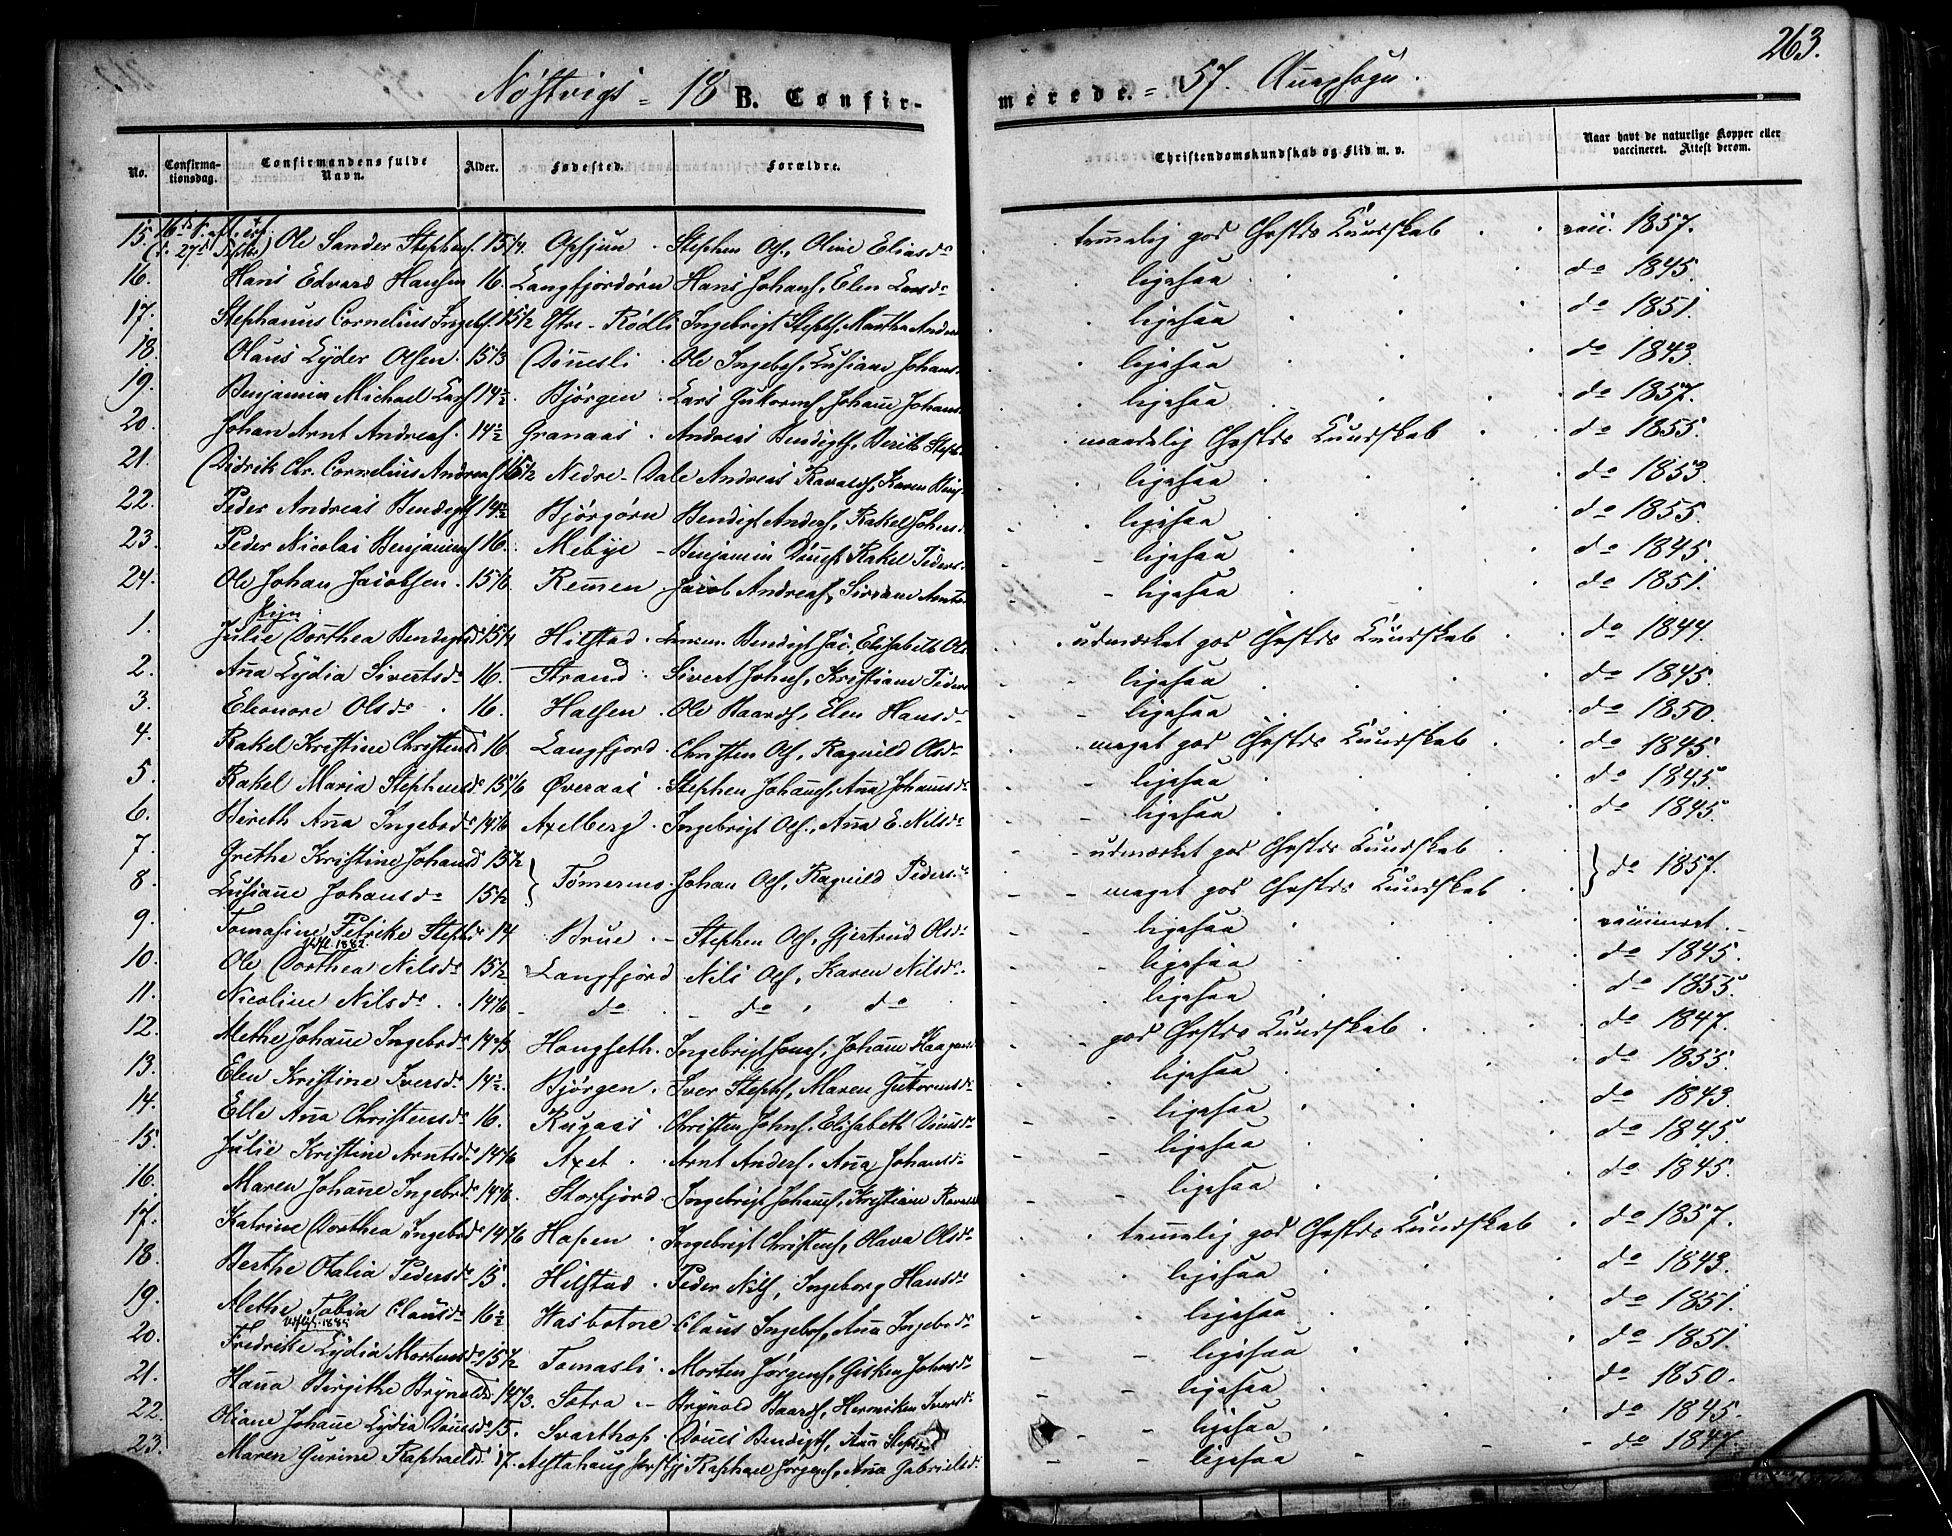 263.
Nöstvigs - 18 B. Confirmerede. - 57. Annexsogn.
No. Confirmationsdag. Confirmandens fulde Navn. Alder. Fødested. Forældre. Christendomskundskab og Flid m. v. Naar havt de naturlige Kopper eller vaccineret. Attest derom.
15. Ole Sander Stephens. 15 1/4. Stephen Ols., Oline Eliasdr temmelig god Chrstds Kundskab vacc. 1857.
16. Hans Edvard Hansen 16. Langfjordörn Hans Johans., Elen Larsdr ligesaa do 1845.
17. Stephanus Cornelius Ingebr. 15 1/2 Rødli Ingebrigt Stephs., Martha Andersdr ligesaa do 1851.
18. Olaus Lyder Olsen. 15 1/3 Dönesli Ole Ingebrs., Lusiane Johansd. ligesaa do 1843.
19. Benjamin Michael Lars. 14 1/2. Bjørgen Lars Guttorms., Johanne Johansd. ligesaa do 1857.
20. Johan Arnt Andreas. 14 1/2 Granaas Andreas Bendigts., Berit Stephd. maadelig Chrstds Kundskab do 1855.
21. Didrik Chr. Cornelius Andreas. Nedre-Dale Andreas Ravalds., Karen ligesaa do 1853.
22. Peder Andreas Bendigts. 14 1/2 Bjørgörn Bendigt Anders., Rakel Johnsd. ligesaa do 1855.
23. Peder Nicolai Benjamins. 16. Mebye Benjamin Dönes., Rakel Pedersd. ligesaa do 1845.
24. Ole Johan Jacobsen. 15 1/6. Remen Jacob Andreas., ligesaa do 1851.
Piger
1. Julie Dorthea Bendigtsd. 15 1/4 Hilstad Bendigt Jac., Elisabeth Ols. udmærket god Chrstds Kundskab do 1844.
2. Anna Lydia Sivertsdr 16. Strand Sivert Johns., Kristiane Pedersd. ligesaa do 1845.
3. Elconore Olsdr 16. Halsen Ole Baards., Elen Hansdr ligesaa do 1850.
4. Rakel Kristine Christensd. 16 Langfjord Christen Ols., Ragnild Olsdr meget god Chrstds Kundskab do 1845.
5. Rakel Maria Stephensdr 15 1/6 Øveraas Stephen Johans., Anna Johansdr ligesaa do 1845.
6. Bereth Anna Ingebrdr 14 5/6 Axelberg Ingebrigt Ols., Anna E. Nilsdr ligesaa do 1845.
7. Grethe Kristine Johansd. 15 1/2 udmærket god Chrstds Kundskab
8. Lusianne Johansdr 15 1/2 } Tömermo Johan Ols., Ragnild Pedersdr meget god Chrstds Kundskab } do 1857.
9. Tomasine Petrike Stephdr 14 Brue Stephen Ols., Gjertrud Olsdr ligesaa vaccineret.
10. Ole Dorthea Nilsdr 15 1/2 Langfjord Nils Ols., Karen Nilsdr ligesaa do 1845.
11. Nicoline Nilsdr 14 1/6 do do do ligesaa do 1855.
12. Methe Johanne Ingebrdr 14 2/3 Hongseth Ingebrigt Jons., Johanne Haagensd. god Chrstds Kundskab do 1847.
13. Elen Kristine Iversdr 14 1/2. Bjørgen Iver Stephs., Maren Guttormsdr ligesaa do 1855.
14. Elle Anna Christensdr 16. Rugaas Christen Johns., Elisabeth Dönsdr ligesaa do 1843.
15. Julie Kristine Arntsdr 14 5/6 Axet Arnt Anders., Anna Johansdr ligesaa do 1845.
16. Maren Johanne Ingebrdr 14 5/6. Storfjord Ingebrigt Johans., Kristiane Ravaldsd. ligesaa do 1845.
17. Katrine Dorthea Ingebrd. 14 5/6 Hofen Ingebrigt Christens., Olava Olsdr temmelig god Chrstds Kundskab do 1857.
18. Berthe Otalia Pedersdr 15. Hilstad Peder Nils., Ingeborg Hansdr ligesaa do 1843.
19. Methe Tobia Clausdr 16 1/2 Hasbotne Claus Ingebrs., Anna Ingebrdr ligesaa do 1851.
20. Fredrikke Lydia Mortensdr 15 1/2 Tomasli Morten Jørgens., Gisken Johnsdr ligesaa do 1851.
21. Hanna Birgithe Brynaldsd. 14 2/3. Sotra Brynald Baards., Hermiken Iversdr ligesaa do 1850.
22. Oliane Johanne Lydia Dönesdr 15. Svarthop Dönes Bendigts., Anna ligesaa do 1845.
23. Maren Gurine Raphaelsd. 17. Alstahaug Raphael Jørgens., Anna Gabrielsd. ligesaa do 1847.